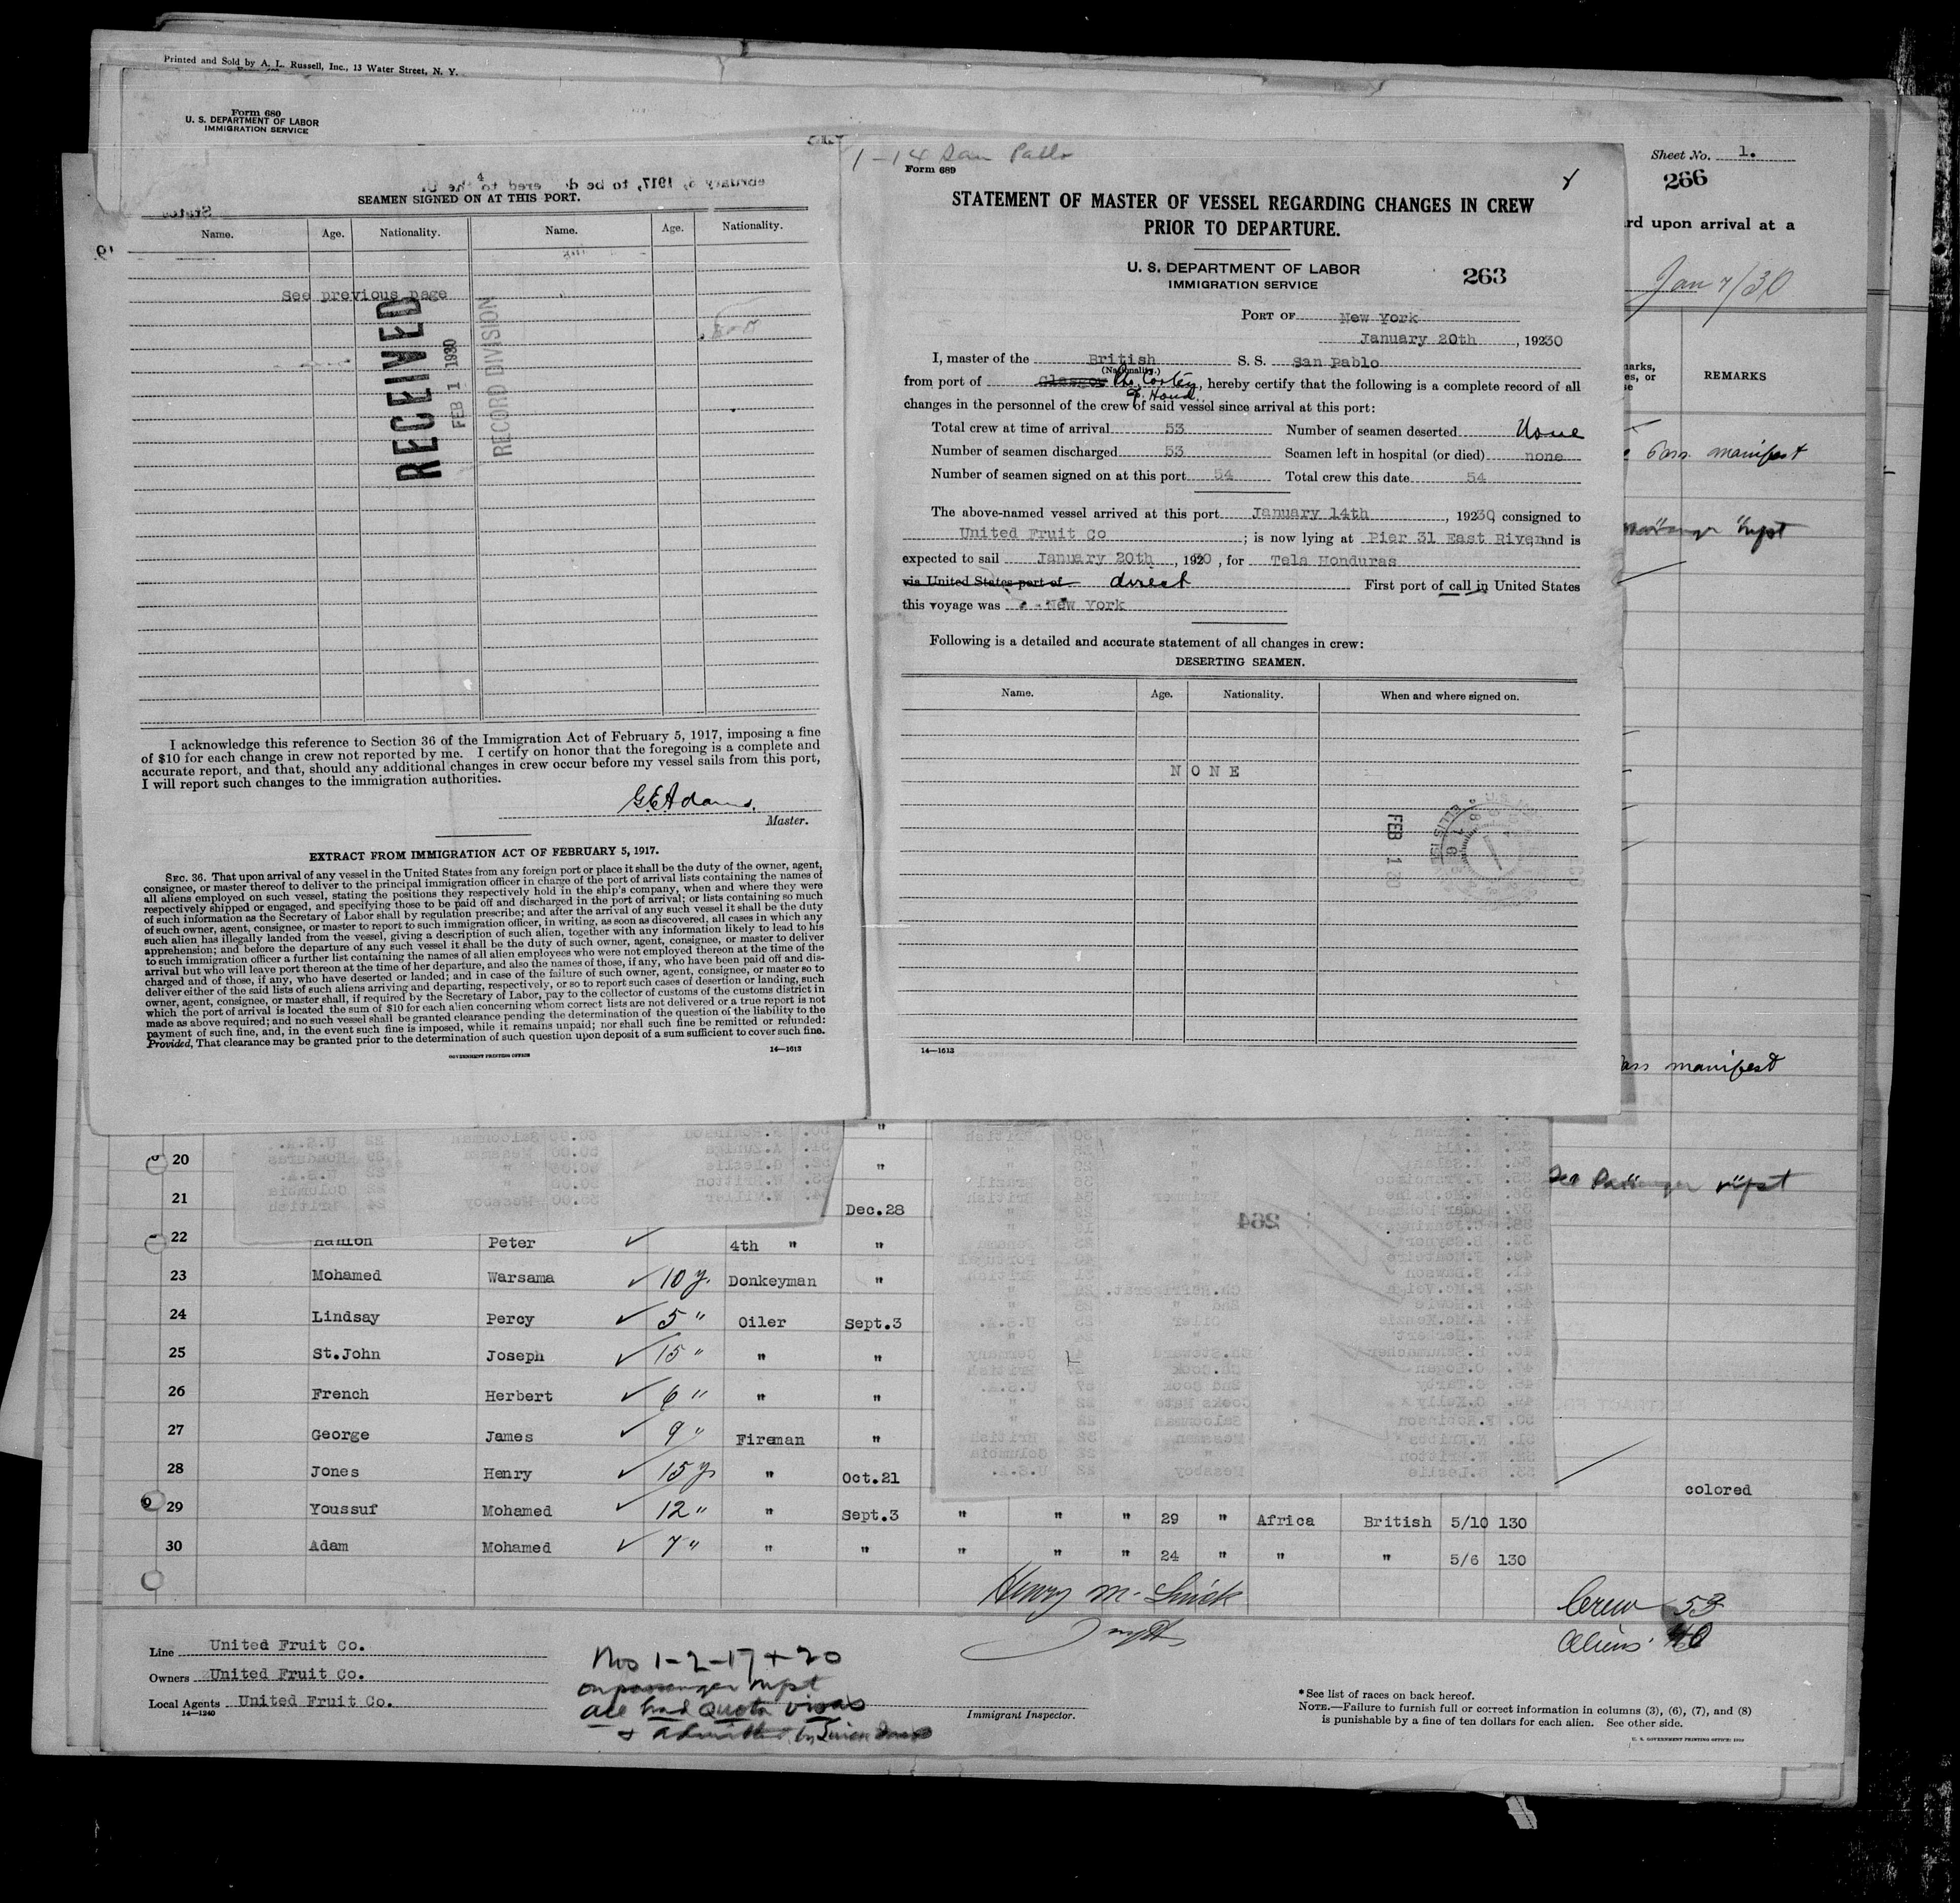 Printed and Sold by A. L. Russell, Inc., 13 Water Street, N. Y.
Form 680
U. S. DEPARTMENT OF LABOR
IMMIGRATION SERVICE
SEAMEN SIGNED ON AT THIS PORT.
Name. Age. Nationality. Name. Age. Nationality.
See previous page
RECEIVED
FEB 1 1930
RECORD DIVISION
I acknowledge this reference to Section 36 of the Immigration Act of February 5, 1917, imposing a fine
of $10 for each change in crew not reported by me. I certify on honor that the foregoing is a complete and
accurate report, and that, should any additional changes in crew occur before my vessel sails from this port,
I will report such changes to the immigration authorities.
G.E Adams.
Master.
EXTRACT FROM IMMIGRATION ACT OF FEBRUARY 5, 1917.
SEC. 36. That upon arrival of any vessel in the United States from any foreign port or place it shall be the duty of the owner, agent,
consignee, or master thereof to deliver to the principal immigration officer in charge of the port of arrival lists containing the names of
all aliens employed on such vessel, stating the positions they respectively hold in the ship's company, when and where they were
respectively shipped or engaged, and specifying those to be paid off and discharged in the port of arrival; or lists containing so much
of such information as the Secretary of Labor shall by regulation prescribe; and after the arrival of any such vessel it shall be the duty
of such owner, agent, consignee, or master to report to such immigration officer, in writing, as soon as discovered, all cases in which any
such alien has illegally landed from the vessel, giving a description of such alien, together with any information likely to lead to his
apprehension; and before the departure of any such vessel it shall be the duty of such owner, agent, consignee, or master to deliver
to such immigration officer a further list containing the names of all alien employees who were not employed thereon at the time of the
arrival but who will leave port thereon at the time of her departure, and also the names of those, if any, who have been paid off and dis-
charged and of those, if any, who have deserted or landed; and in case of the failure of such owner, agent, consignee, or master so to
deliver either of the said lists of such aliens arriving and departing, respectively, or so to report such cases of desertion or landing, such
owner, agent, consignee, or master shall, if required by the Secretary of Labor, pay to the collector of customs of the customs district in
which the port of arrival is located the sum of $10 for each alien concerning whom correct lists are not delivered or a true report is not
made as above required; and no such vessel shall be granted clearance pending the determination of the question of the liability to the
payment of such fine, and, in the event such fine is imposed, while it remains unpaid; nor shall such fine be remitted or refunded:
Provided, That clearance may be granted prior to the determination of such question upon deposit of a sum sufficient to cover such fine.
GOVERNMENT PRINTING OFFICE 14—1613
1-14 San Pablo
Form 689
STATEMENT OF MASTER OF VESSEL REGARDING CHANGES IN CREW
PRIOR TO DEPARTURE.
U. S. DEPARTMENT OF LABOR
IMMIGRATION SERVICE
263
PORT OF New York
January 20th, 19230
I, master of the British S. S. San Pablo
(Nationality.)
from port of Glasgow Pto. Cortez, hereby certify that the following is a complete record of all
Hond.
changes in the personnel of the crew of said vessel since arrival at this port:
Total crew at time of arrival 53 Number of seamen deserted None
Number of seamen discharged 53 Seamen left in hospital (or died) none
Number of seamen signed on at this port 54 Total crew this date 54
The above-named vessel arrived at this port January 14th, 19230, consigned to
United Fruit Co; is now lying at Pier 31 East River and is
expected to sail January 20th, 1930, for Tela Honduras
via United States port of direct First port of call in United States
this voyage was New York
Following is a detailed and accurate statement of all changes in crew:
DESERTING SEAMEN.
Name. Age. Nationality. When and where signed on.
NONE
FEB 1 30
14—1613
Sheet No. 1.
266
rd upon arrival at a
Jan 7/30
REMARKS
Pass. manifest
manifest
20 "
21 Dec.28
22 Hanlon Peter 4th " "
23 Mohamed Warsama 10 y. Donkeyman "
24 Lindsay Percy 5 " Oiler Sept.3
25 St.John Joseph 15 " " "
26 French Herbert 6 " " "
27 George James 9 " Fireman "
28 Jones Henry 15 y " Oct.21 colored
29 Youssuf Mohamed 12 " " Sept.3 " " " 29 " Africa British 5/10 130
30 Adam Mohamed 7 " " " " " " 24 " " " 5/6 130
264
Crew 53
Aliens
Line United Fruit Co.
Owners United Fruit Co.
Local Agents United Fruit Co.
14—1240
Nos 1-2-17+20
on passenger mfst
all had quota visas
+ admitted by
Immigrant Inspector.
* See list of races on back hereof.
NOTE.—Failure to furnish full or correct information in columns (3), (6), (7), and (8)
is punishable by a fine of ten dollars for each alien. See other side.